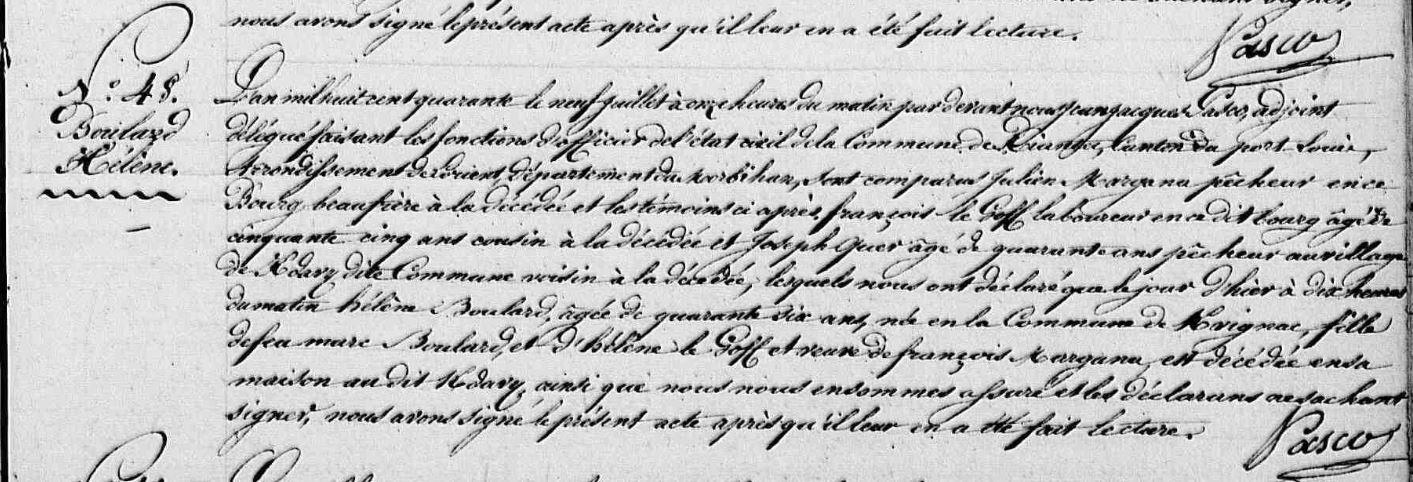 nous avons signé le présent acte après qu'il leur en a été fait lecture.
Pasco
N.º 48.
Boulard
Hélène.
L'an mil huit cent quarante le neuf juillet à onze heures du matin par devant nous Jean Jacques Pasco, adjoint
délégué faisant les fonctions d'officier de l'état civil de la Commune de Riantec, Canton du port Louis,
arrondissement de Lorient, département du Morbihan, sont comparus Julien Margana pêcheur en ce
Bourg beaufrère à la décédée et les témoins ci après, françois le Goff laboureur en ce dit bourg âgé de
cinquante cinq ans cousin à la décédée et Joseph Quer âgé de quarante ans pêcheur au village
de Kdavy dite Commune voisin à la décédée, lesquels nous ont déclaré que le jour d'hier à dix heures
du matin hélène Boulard, âgée de quarante six ans, née en la Commune de Kvignac, fille
de feu marc Boulard, et d'hélène le Goff et veuve de françois Margana, est décédée en sa
maison au dit Kdavy, ainsi que nous nous en sommes assuré et les déclarans ne sachant
signer, nous avons signé le présent acte après qu'il leur en a été fait lecture.
Pasco